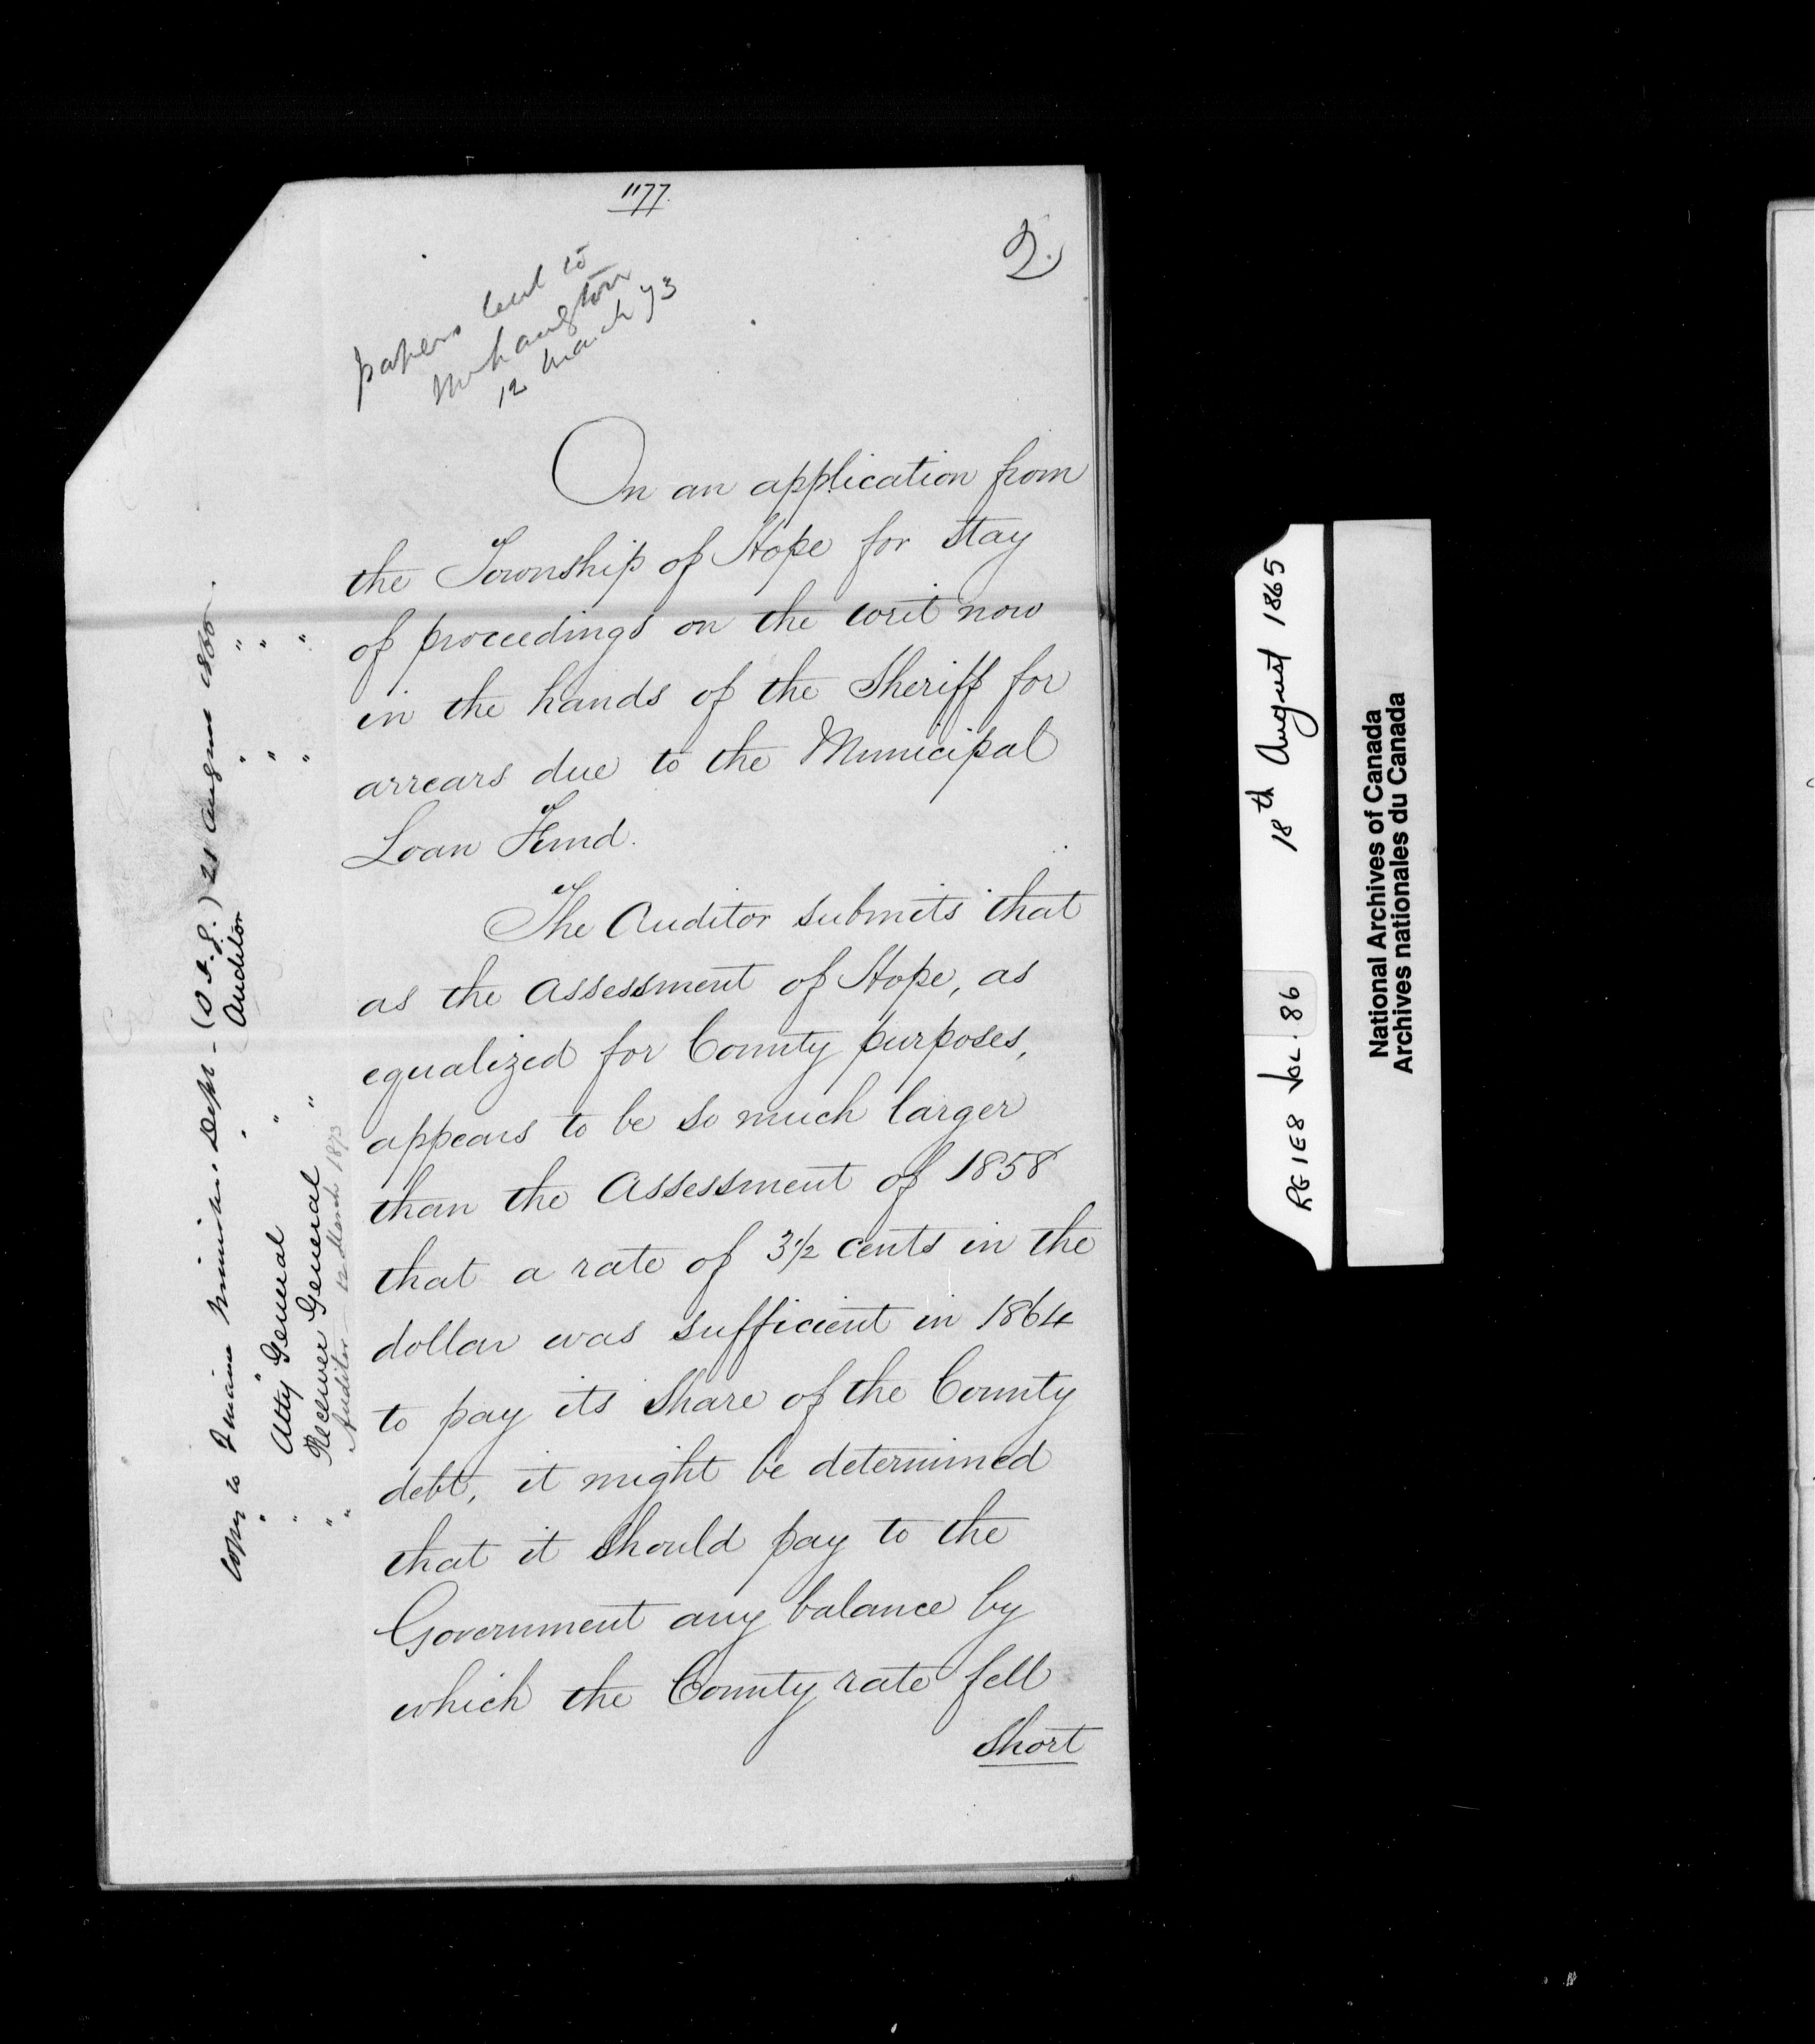 1177.
2.
papers lent to
Mr Langton
12 March 73
On an application from
the Township of Hope for stay
of proceedings on the writ now
in the hands of the Sheriff for
arrears due to the Municipal
Loan Fund.
The Auditor submits that
as the Assessment of Hope, as
equalized for County purposes,
appears to be so much larger
than the Assessment of 1858
that a rate of 3½ cents in the
dollar was sufficient in 1864
to pay its share of the County
debt, it might be determined
that it should pay to the
Government any balance by
which the County rate fell
short
Copy to Finance Minister's Dept - 21 August 1865
" " (Auditor " "
" Atty General " " "
" Receiver General " " "
" Auditor 12 March 1873
RG1E8 VOL. 86 18th August 1865
National Archives of Canada
Archives nationales du Canada